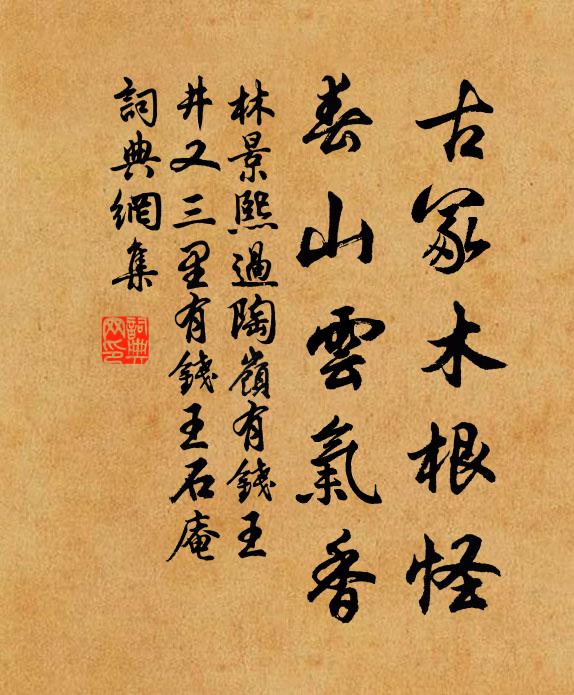 古冢木根怪
春山雲氣香
林景熙過陶嶺有錢王
井又三里有錢王石庵
詞典網集
詞典
网印